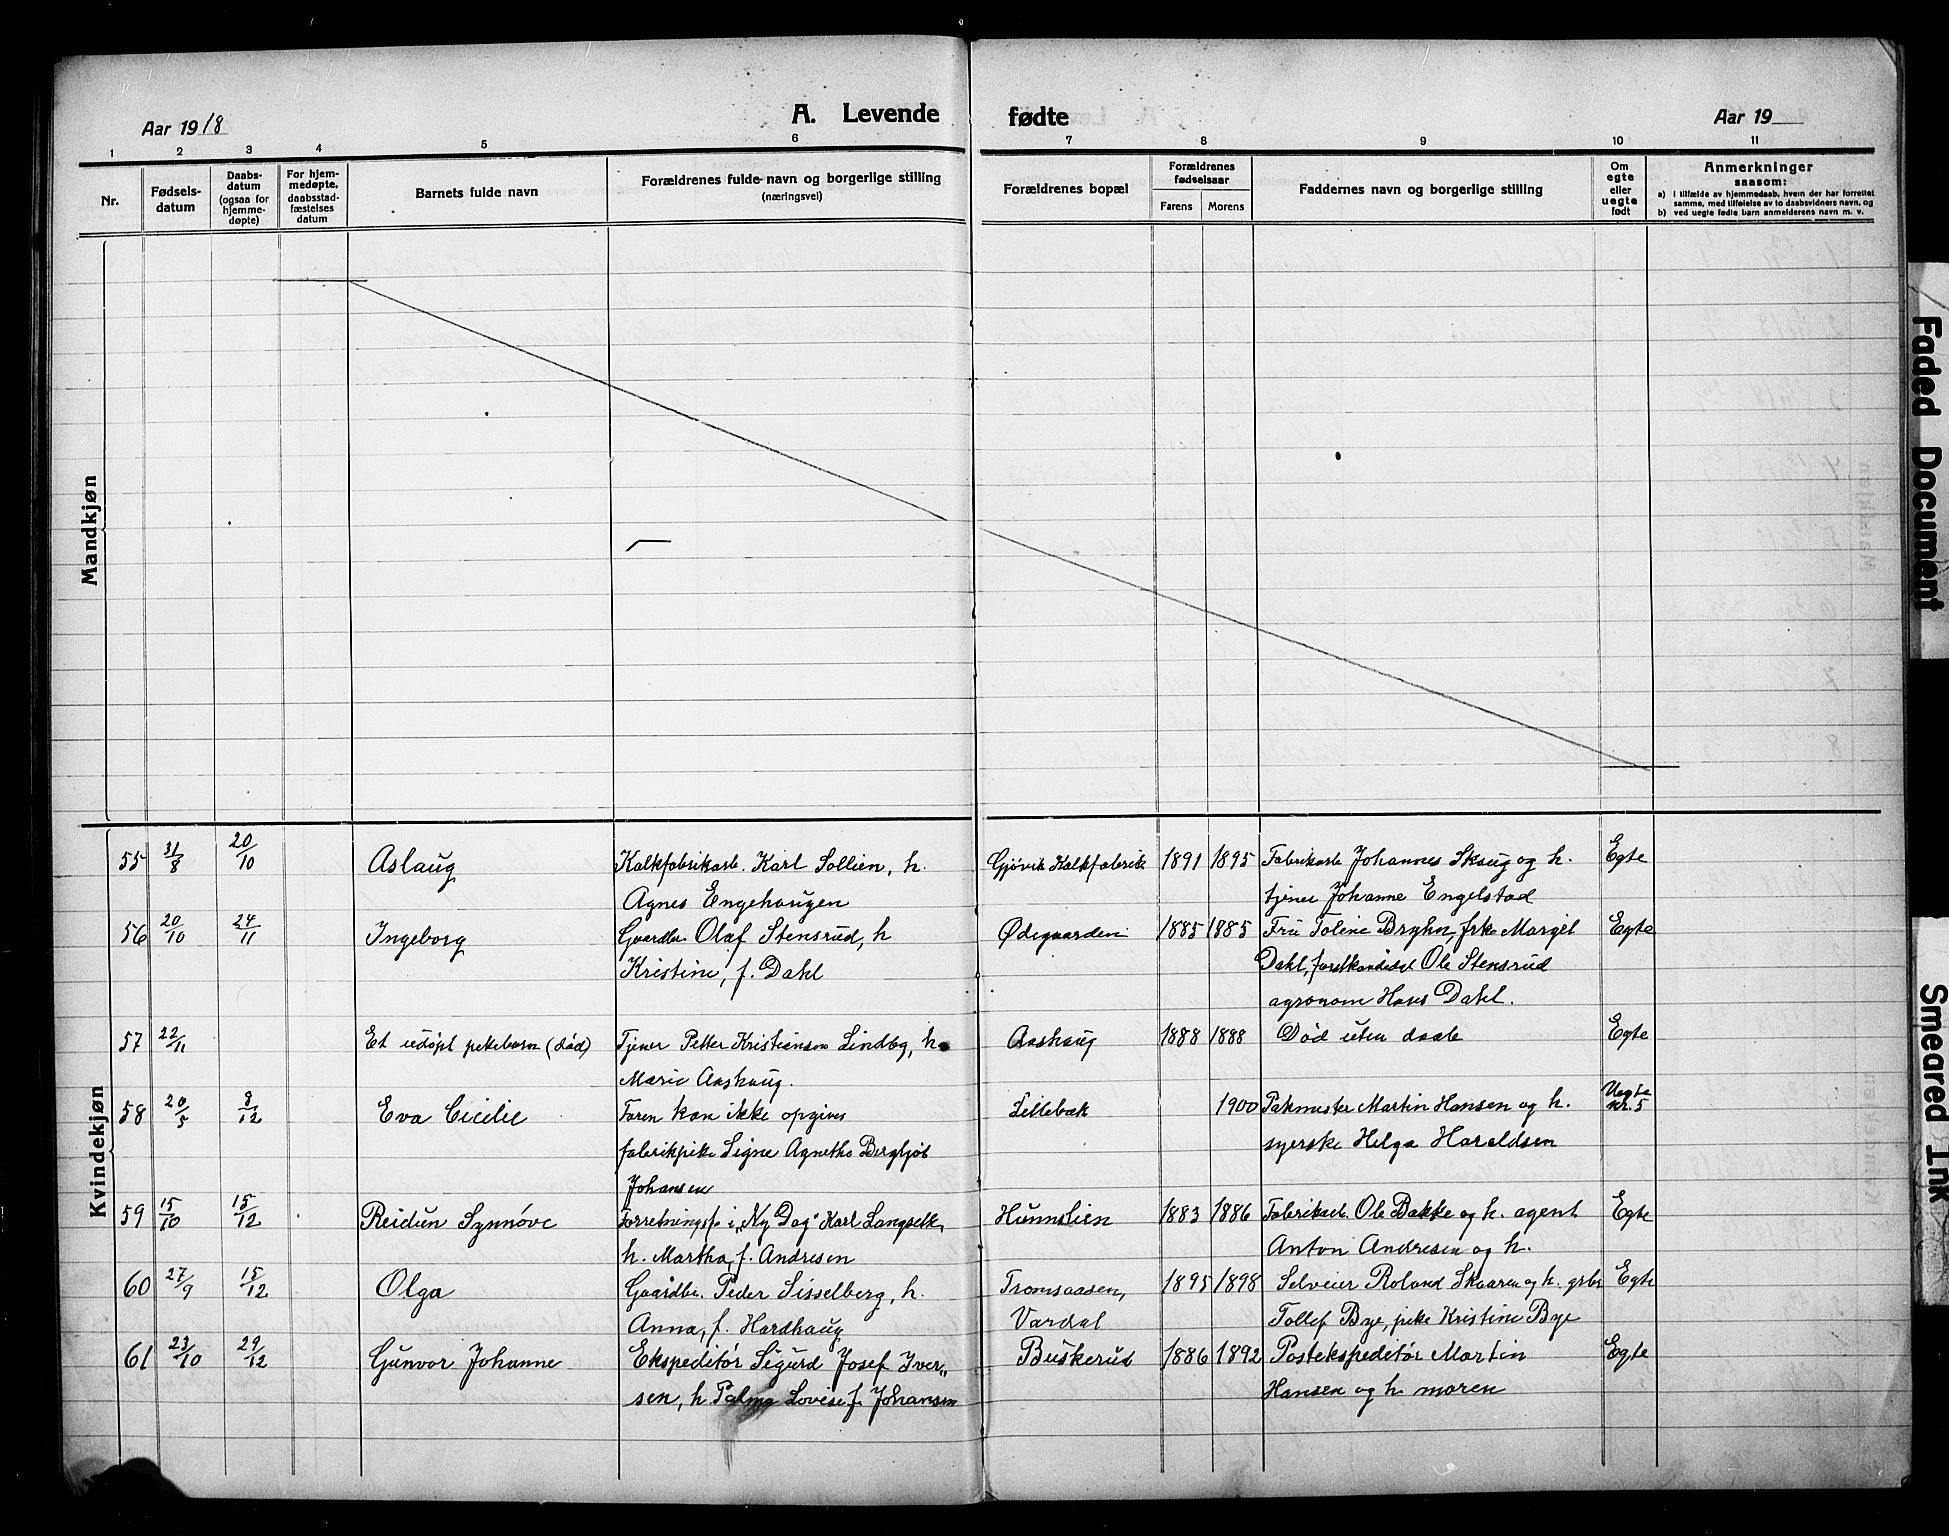 A. Levende fødte
Aar 1918
Aar 19
1 2 3 4 5 6 7 8 9 10 11
Nr.
Fødsels-
datum
Daabs-
datum
(ogsaa for
hjemme-
døpte)
For hjem-
medøpte,
daabsstad-
fæstelses
datum
Barnets fulde navn
Forældrenes fulde navn og borgerlige stilling
(næringsvei)
Forældrenes bopæl
Forældrenes
fødselsaar
Farens Morens
Faddernes navn og borgerlige stilling
Om
egte
eller
uegte
født
Anmerkninger
saasom:
a) i tilfælde av hjemmedaab, hvem der har forrettet
samme, med tilføielse av to daabsvidners navn, og
b) ved uegte fødte barn anmelderens navn m. v.
Mandkjøn
Kvindekjøn
55 31/8 20/10 Aslaug Kalkfabrikarb. Karl Sollien, h. Gjøvik Kalkfabrik 1891 1895 Fabrikarb Johannes Skaug og h. Egte
Agnes Engehaugen tjener Johanne Engelstad
56 20/10 24/11 Ingeborg Gaardbr. Olaf Stensrud, h Ødegaarden 1885 1885 Fru Toline Bryhn, frk. Margit Egte
Kristine, f. Dahl Dahl, forstkandidat Ole Stensrud
agronom Hans Dahl.
57 22/11 Et udøpt pikebarn (død) Tjener Petter Kristiansen Lindbg, h. Aashaug 1888 1888 Død uten daab Egte
Marie Aashaug.
58 20/5 8/12 Eva Cicilie Faren kan ikke opgives Lillebæk 1900 Pakmester Martin Hansen og h. Uegte
nr. 5
fabrikpike Signe Agnethe Bergljot syerske Helga Haraldsen
Johansen
59 15/10 15/12 Reidun Synnøve Forretningsf. i „Ny Dag" Karl Langseth, Hunnslien 1883 1886 Fabrikarb. Ole Bakke og h. agent Egte
h. Martha, f. Andresen Anton Andresen og h.
60 27/9 15/12 Olga Gaardbr. Peder Sisselberg, h. Tromsaasen, 1895 1898 Selveier Roland Skaaren og h. grbr Egte
Anna, f. Hardhaug Vardal Tollef Bye, pike Kristine Bye
61 23/10 29/12 Gunvor Johanne Ekspeditør Sigurd Josef Iver- Buskerud 1886 1892 Postekspeditør Martin Egte
sen, h Palma Lovise f. Johansen Hansen og h. moren
Faded Document
Smeared Ink